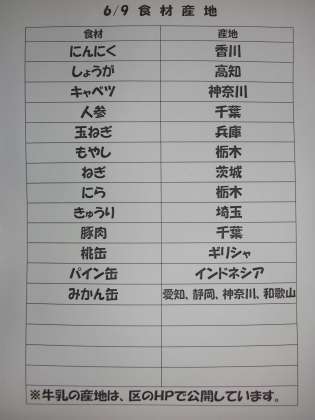 6/9 食材産地
食材 産地
にんにく 香川
しょうが 高知
キャベツ 神奈川
人参 千葉
玉ねぎ 兵庫
もやし 栃木
ねぎ 茨城
にら 栃木
きゅうり 埼玉
豚肉 千葉
桃缶 ギリシャ
パイン缶 インドネシア
みかん缶 愛知、静岡、神奈川、和歌山
※牛乳の産地は、区のHPで公開しています。